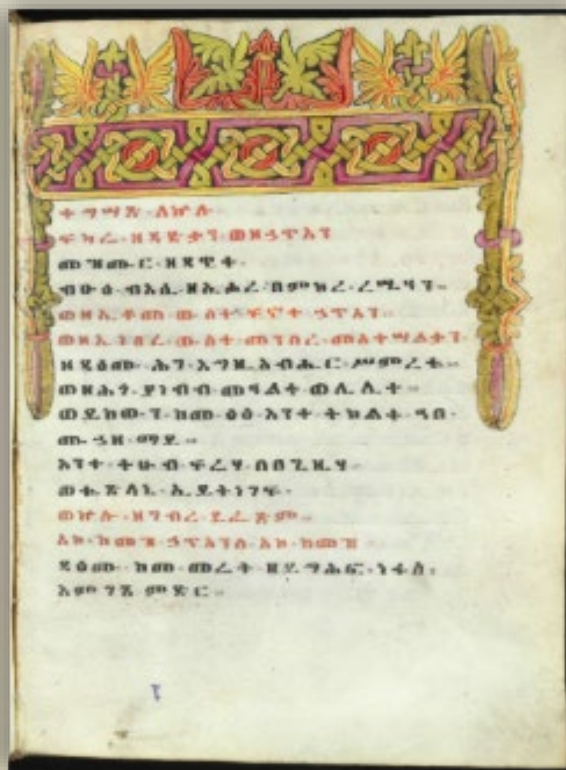 ተግሣጽ፡ለኵሉ
ፍካሬ፡ዘጻድቃን፡ወዘኃጥአን
መዝሙር፡ዘዳዊት፡
ብፁዕ፡ብእሲ፡ዘኢሖረ፡በምክረ፡ረሲዓን።
ወዘኢቆመ፡ውስተ፡ፍኖተ፡ኃጥአን።
ወዘኢነበረ፡ውስተ፡መንበረ፡መስተሣልቃን።
ዘዳዕሙ፡ሕገ፡እግዚአብሔር፡ሥምረቱ።
ወዘሕጎ፡ያነብብ፡መዓልተ፡ወሌሊተ።
ወይከውን፡ከመ፡ዕፅ፡እንተ፡ትክልት፡ኀበ፡
ሙኃዘ፡ማይ።
እንተ፡ትሁብ፡ፍሬሃ፡በበጊዜሃ፡
ወቈጽላኒ፡ኢይትነገፍ፡
ወኵሉ፡ዘገብረ፡ይፌጽም።
አኮ፡ከመዝ፡ኃጥአንሰ፡አኮ፡ከመዝ
ዳዕሙ፡ከመ፡መሬት፡ዘይግሕፎ፡ነፋስ፡
እምገጸ፡ምድር።